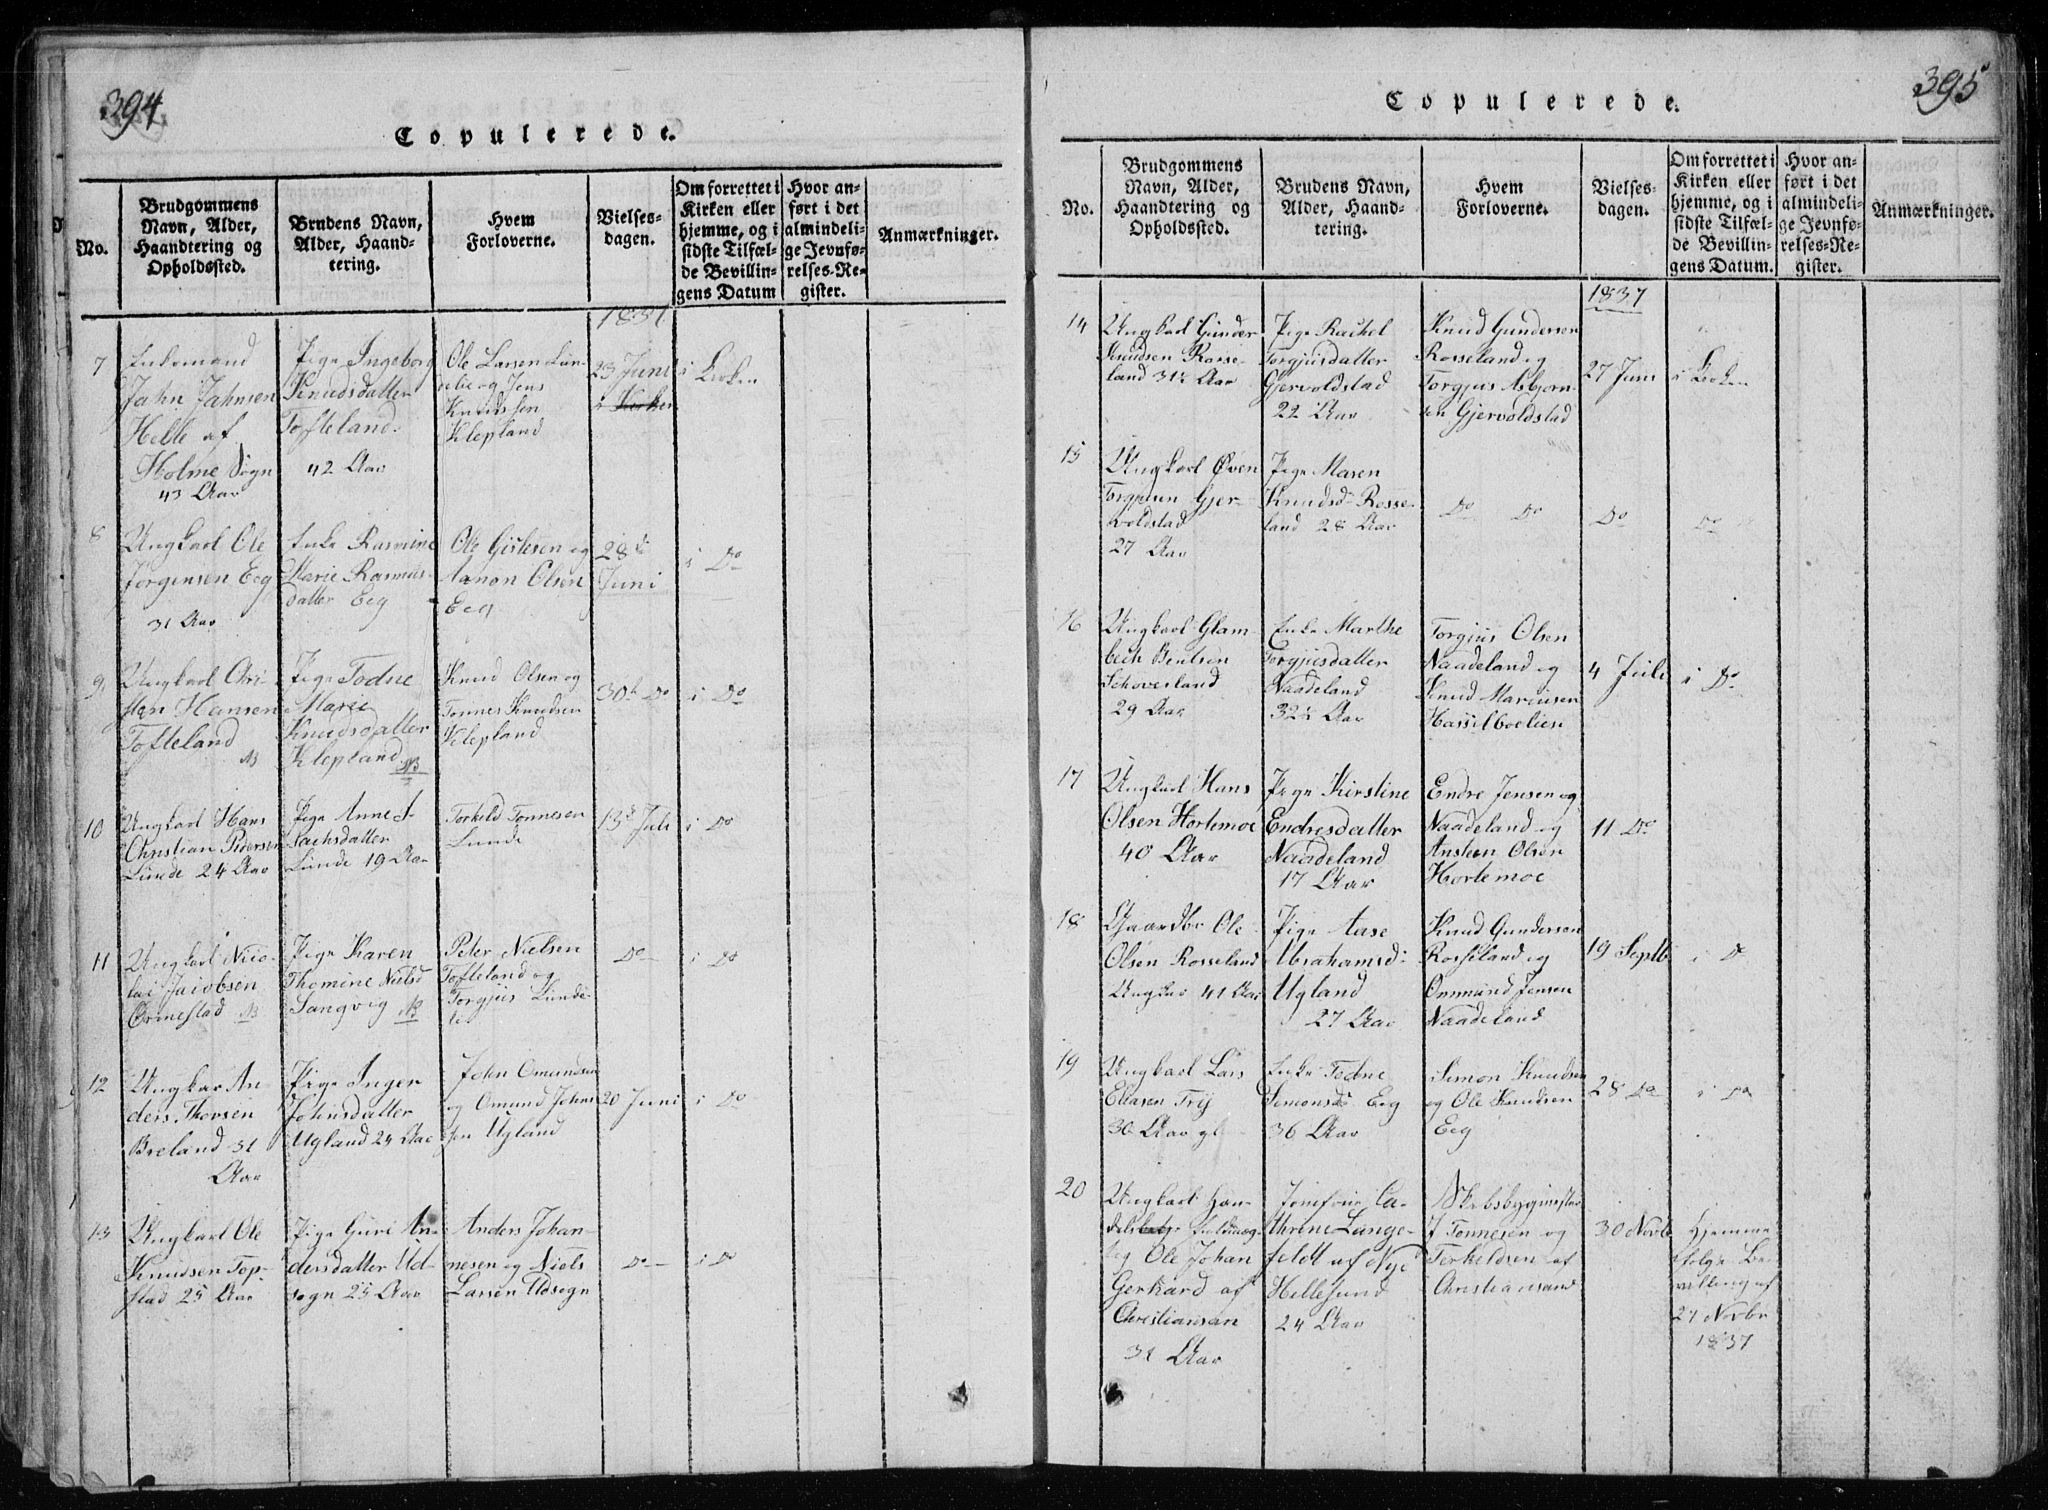 394
Copulerede.
No.
Brudgommens
Navn, Alder,
Haandtering og
Opholdssted.
Brudens Navn,
Alder, Haand-
tering.
Hvem
Forloverne.
Vielses-
dagen.
Om forrettet i
Kirken eller
hjemme, og i
sidste Tilfæl-
de Bevillin-
gens Datum
Hvor an-
ført i det
almindeli-
ge Jevnfø-
relses-Re-
gister.
Anmærkninger.
1837
7
Enkemand
Jahn Jahnsen
Helle af
Holme Sogn
43 Aar
Pige Ingeborg
Knudsdatter
Tofteland.
42 Aar
Ole Larsen
og Jens
Knudssen
Klepland
23 Juni
i Kirken
i Kirken
8
Ungkarl Ole
Jørgensen Eeg
31 Aar
Enke Rasmine
Marie Rasmus-
datter Eeg
Ole Gislesen og
Aanon Olsen
Eeg
28d
Juni
i Do
9
Ungkarl Chri-
sten Hansen
Tofteland
NB
Pige Todne
Marie
Knudsdatter
Klepland NB
Knud Olsen og
Tønnes Knudsen
Klepland
30te Do
i Do
10
Ungkarl Hans
Christian Pedersen
Lunde 24 Aar
Pige Anne I-
sachsdatter
Lunde 19 Aar
Torkild Tønnesen
Lunde
13de Juli
i Do
11
Ungkarl Nico-
lai Jacobsen
Ormestad NB
Pige Karen
Thomine Nielsd
Langvig NB
Peter Nielsen
Tofteland og
Torgjus Lunde-
lie
Do
i Do
12
Ungkar An-
ders Thorsen
Breland 31
Aar
Pige Inger
Johnsdatter
Ugland 24 Aar
John Omundsen
og Omund Johns
sen Ugland
20 Juni
i Do
13
Ungkarl Ole
Knudsen Top-
stad 25 Aar
Pige Guri An-
dersdatter Ud-
sogn 25 Aar
Anders Johan-
nesen og Niels
Larsen Udsogn
Do
i Do
395
Copulerede.
No.
Brudgommens
Navn, Alder,
Haandtering og
Opholdssted.
Brudens Navn,
Alder, Haand-
tering.
Hvem
Forloverne.
Vielses-
dagen.
Om forrettet i
Kirken eller
hjemme, og i
sidste Tilfæl-
de Bevillin-
gens Datum.
Hvor an-
ført i det
almindeli-
ge Jevnfø-
relses-Re-
gister.
Anmærkninger.
1837
14
Ungkarl Gunder
Knudsen Rosse-
land 31½ Aar
Pige Rachel
Torgjusdatter
Gjervoldstad
22 Aar
Knud Gundersen
Rosseland og
Torgjus Asbjørn-
sen Gjervoldstad
27 Juni
i Kirken
15
Ungkarl Øven
Torgjusen Gjer-
voldstad
27 Aar
Pige Maren
Knudsd: Rosse-
land 28 Aar
Do Do
Do
Do
16
Ungkarl Glam-
bech Bentsen
Schoverland
29 Aar
Enke Marthe
Torgjusdatter
Naadeland
32½ Aar
Torgjus Olsen
Naadeland og
Knud Marcusen
Hasselboelien
4 Juli
i Do
17
Ungkarl Hans
Olsen Hortemoe
40 Aar
Pige Kirstine
Endresdatter
Naadeland
17 Aar
Endre Jensen og
Naadeland og
Ansteen Olsen
Hortemoe
11 Do
18
Gaardbr Ole
Olsen Rosseland
41 Aar
Pige Aase
Abrahamsd:
Ugland
27 Aar
Knud Gundersen
Rosseland og
Ommund Jensen
Naadeland
19 Septb
i D
19
Ungkarl Lars
Eliasen Try
30 Aar gl
Enke Todne
Simonsd: Eeg
36 Aar
Simon Knudsen
og Ole Knudsen
Eeg
28 Do
i Do
20
Ungkarl Han-
dels
Ole Johan
Gerhard af
Christiansan
31 Aar
Jomfrue Ca-
thrine Lange-
feldt af Nye
Hellesund
24 Aar
Skibsbygmester
J Tønnesen og
Terkeldsen af
Christiansand
30 Novb
Hjemme
ifølge Be-
villing af
27 Novbr
1837